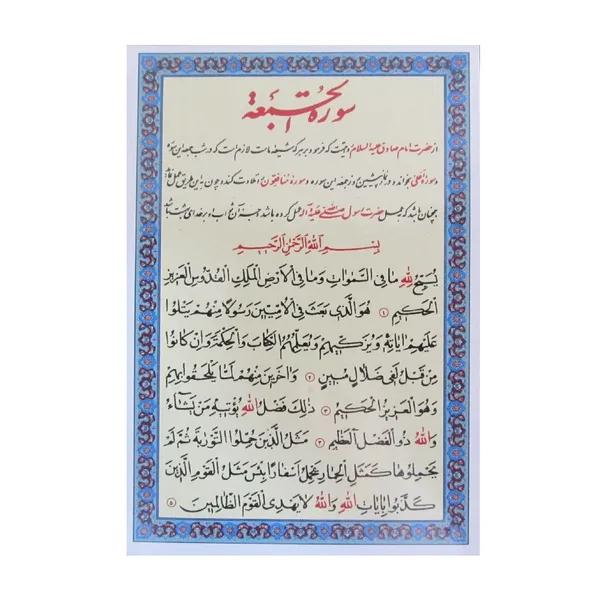 سورة الجمعة
از حضرت امام صادق علیه السلام روایت که فرمود بر هر که شیعه مات لازم است که در شب جمعه این سوره
و سورهٔ اعلی بخواند و در نماز پیشین روز جمعه این سوره و سورهٔ منافقون تلاوت کند و چون باین طریق عمل نماید
بچنان باشد که بعمل حضرت رسول صلی الله علیه و آله عمل کرده باشد و جزای آن ثواب او بر خدای بهشت باشد
بِسْمِ اللّٰهِ الرَّحْمٰنِ الرَّحِيمِ
يُسَبِّحُ لِلّٰهِ مَا فِي السَّمٰوَاتِ وَمَا فِي الْاَرْضِ الْمَلِكِ الْقُدُّوسِ الْعَزِيزِ
الْحَكِيمِ ۱ هُوَ الَّذِي بَعَثَ فِي الْاُمِّيّٖنَ رَسُولًا مِنْهُمْ يَتْلُوا
عَلَيْهِمْ اٰيَاتِهٖ وَيُزَكِّيهِمْ وَيُعَلِّمُهُمُ الْكِتَابَ وَالْحِكْمَةَ وَاِنْ كَانُوا
مِنْ قَبْلُ لَفِي ضَلَالٍ مُبِينٍ ۲ وَاٰخَرِينَ مِنْهُمْ لَمَّا يَلْحَقُوا بِهِمْ
وَهُوَ الْعَزِيزُ الْحَكِيمُ ۳ ذٰلِكَ فَضْلُ اللّٰهِ يُؤْتِيهِ مَنْ يَشَاءُ
وَاللّٰهُ ذُو الْفَضْلِ الْعَظِيمِ ۴ مَثَلُ الَّذِينَ حُمِّلُوا التَّوْرٰيةَ ثُمَّ لَمْ
يَحْمِلُوهَا كَمَثَلِ الْحِمَارِ يَحْمِلُ اَسْفَارًا بِئْسَ مَثَلُ الْقَوْمِ الَّذِينَ
كَذَّبُوا بِاٰيَاتِ اللّٰهِ وَاللّٰهُ لَا يَهْدِي الْقَوْمَ الظَّالِمِينَ ۵